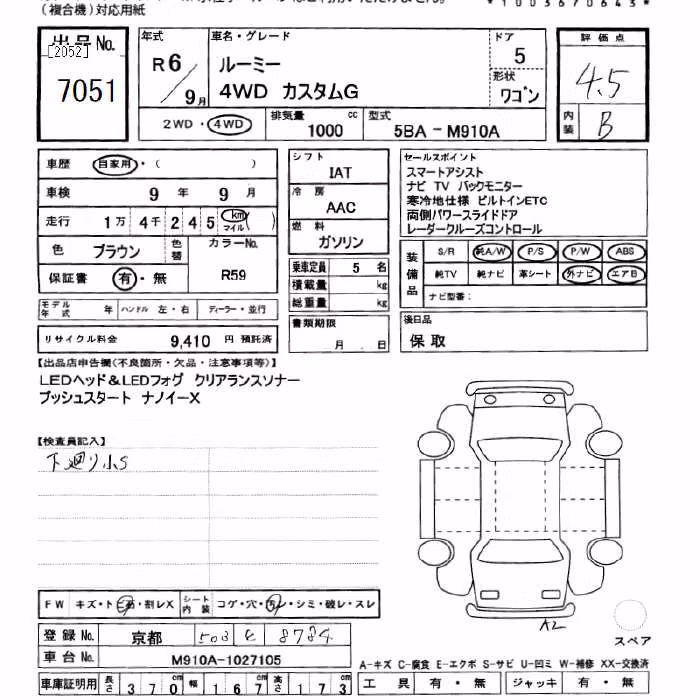 (複合機)対応用紙
*1003670643*
出品No.
[2052]
7051
年式
R6/9月
車名・グレード
ルーミー
4WD カスタムG
ドア
5
形状
ワゴン
評価点
4.5
内装
B
2WD・4WD
排気量
1000 cc
型式
5BA-M910A
車歴 自家用・( )
車検 9年 9月
走行 1万 4千 2 4 5 km マイル ( )
色 ブラウン 色替
カラーNo.
R59
保証書 有・無
モデル年式 年 ハンドル 左・右 ディーラー・並行
リサイクル料金 9,410 円 預託済
シフト
IAT
冷房
AAC
燃料
ガソリン
乗車定員 5 名
積載量 kg
総重量 kg
書類期限
月 日
セールスポイント
スマートアシスト
ナビ TV バックモニター
寒冷地仕様 ビルトインETC
両側パワースライドドア
レーダークルーズコントロール
装備品
S/R 純A/W P/S P/W ABS
純TV 純ナビ 革シート 外ナビ エアB
ナビ型番:
後日品
保取
【出品店申告欄(不良箇所・欠品・注意事項等)】
LEDヘッド&LEDフォグ クリアランスソナー
プッシュスタート ナノイーX
【検査員記入】
下廻り小S
FW キズ・トビ石・割レX
シート内装 コゲ・穴・汚レ・シミ・破レ・スレ
登録No. 京都 503 8784
車台No. M910A-1027105
車庫証明用 長さ 370cm 幅 167cm 高さ 173cm
A2
スペア
A-キズ C-腐食 E-エクボ S-サビ U-凹ミ W-補修 XX-交換済
工具 有・無 ジャッキ 有・無